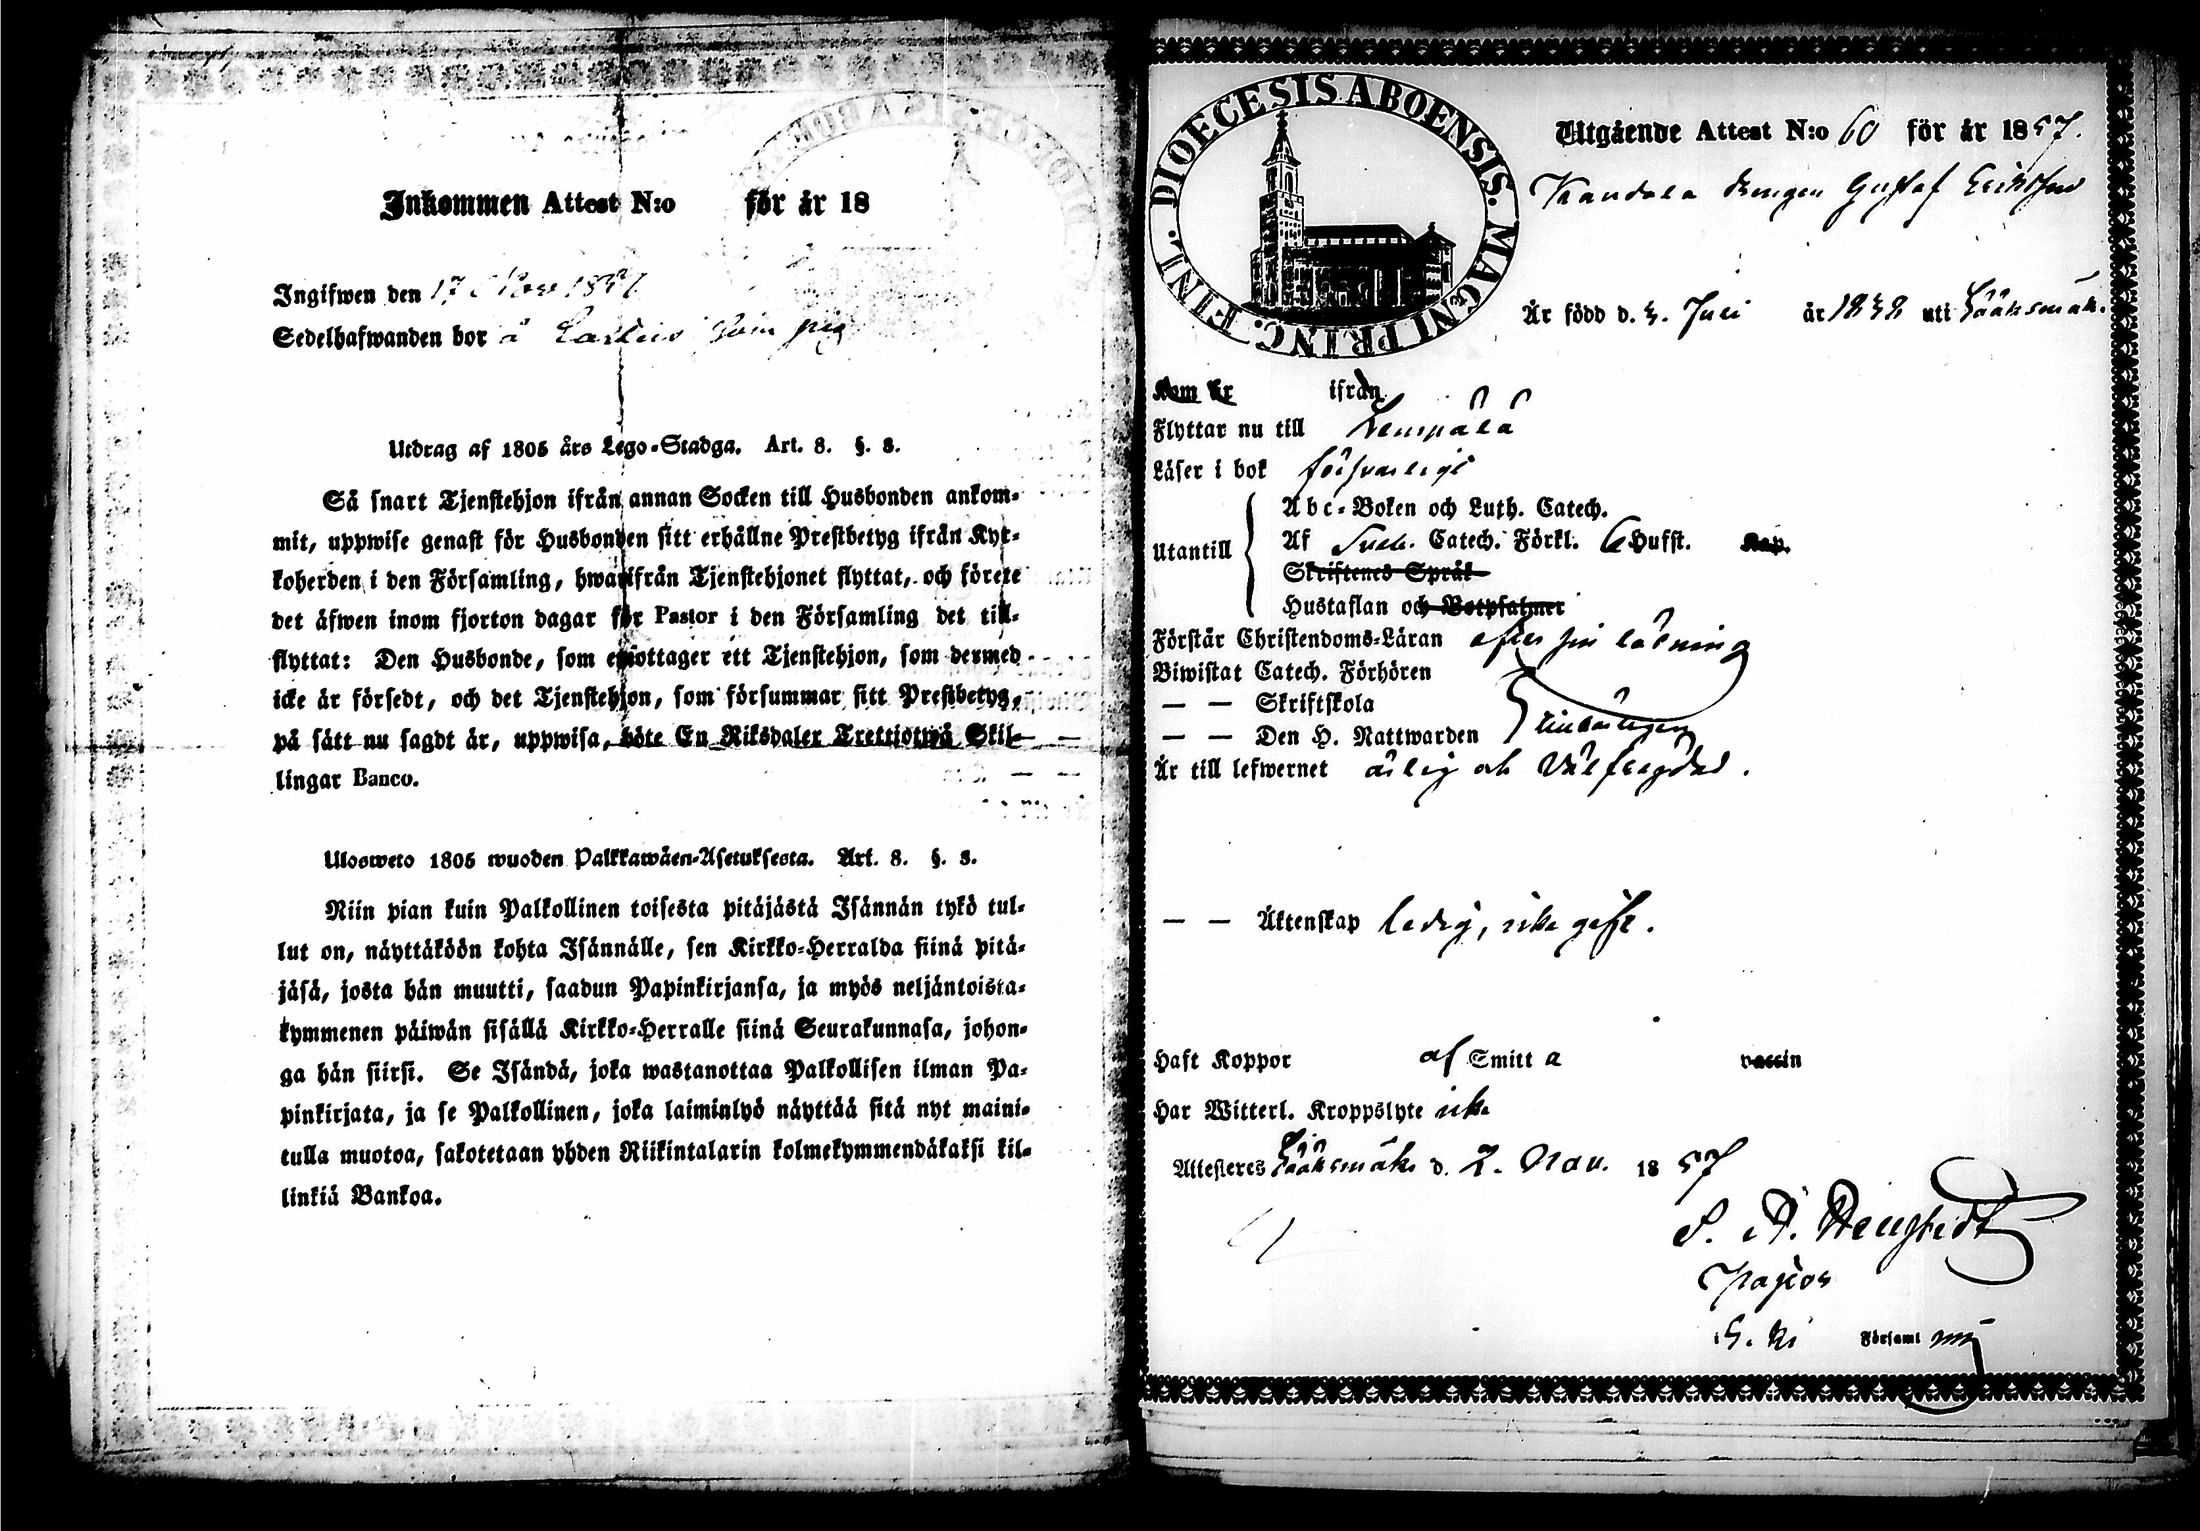 Inkommen Attest N:o för år 18
Ingifwen den 17 Nov 1857
Sedelhafwanden bor å som pig
Utdrag af 1805 års Lego-Stadga. Art. 8. §. 3.
Så snart Tjenstehjon ifrån annan Socken till Husbonden ankom-
mit, uppwise genast för Husbonden sitt erhållne Prestbetyg ifrån Kyr-
koherden i den Församling, hwarifrån Tjenstehjonet flyttat, och förete
det äfwen inom fjorton dagar för Pastor i den Församling det till-
flyttat: Den Husbonde, som emottager ett Tjenstehjon, som dermed
icke är försedt, och det Tjenstehjon, som försummar sitt Prestbetyg,
på sätt nu sagdt är, uppwisa, böte En Riksdaler Trettiotwå Skil-
lingar Banco.
Ulosweto 1805 wuoden Palkkawäen-Asetuksesta. Art. 8. §. 3.
Niin pian kuin Palkollinen toisesta pitäjästä Isännän tykö tul-
lut on, näyttäköön kohta Isännälle, sen Kirkko-Herralda siinä pitä-
jäsä, josta hän muutti, saadun Papinkirjansa, ja myös neljäntoista-
kymmenen päiwän sisällä Kirkko-Herralle siinä Seurakunnasa, johon-
ga hän siirsi. Se Isändä, joka wastanottaa Palkollisen ilman Pa-
pinkirjata, ja se Palkollinen, joka laiminlyö näyttää sitä nyt maini-
tulla muotoa, sakotetaan yhden Riikintalarin kolmekymmendäkaksi kil-
linkiä Bankoa.
DIOECESIS ABOENSIS. MAGNI PRINC. FINL.
Utgående Attest N:o 60 för år 1857.
Drengen Gustaf Eriksson
Är född d. 3. Juli år 1838 uti Sääksmäki.
Kom år ifrån
Flyttar nu till Lempälä
Läser i bok försvarligt
Utantill
Abc-Boken och Luth. Catech.
Af Sveb. Catech. Förkl. 6 Hufst. Kap.
Skriftenes Språk
Hustaflan och Botpsalmer
Förstår Christendoms-Läran efter sin läsning
Biwistat Catech. Förhören
— — Skriftskola
— — Den H. Nattwarden
Är till lefwernet ärlig och välfregdad.
— — Äktenskap ledig, icke gift.
Haft Koppor af Smitta vaccin
Har Witterl. Kroppslyte icke
Attesteres Sääksmäki d. 2. Nov. 1857
Pastor
Församl